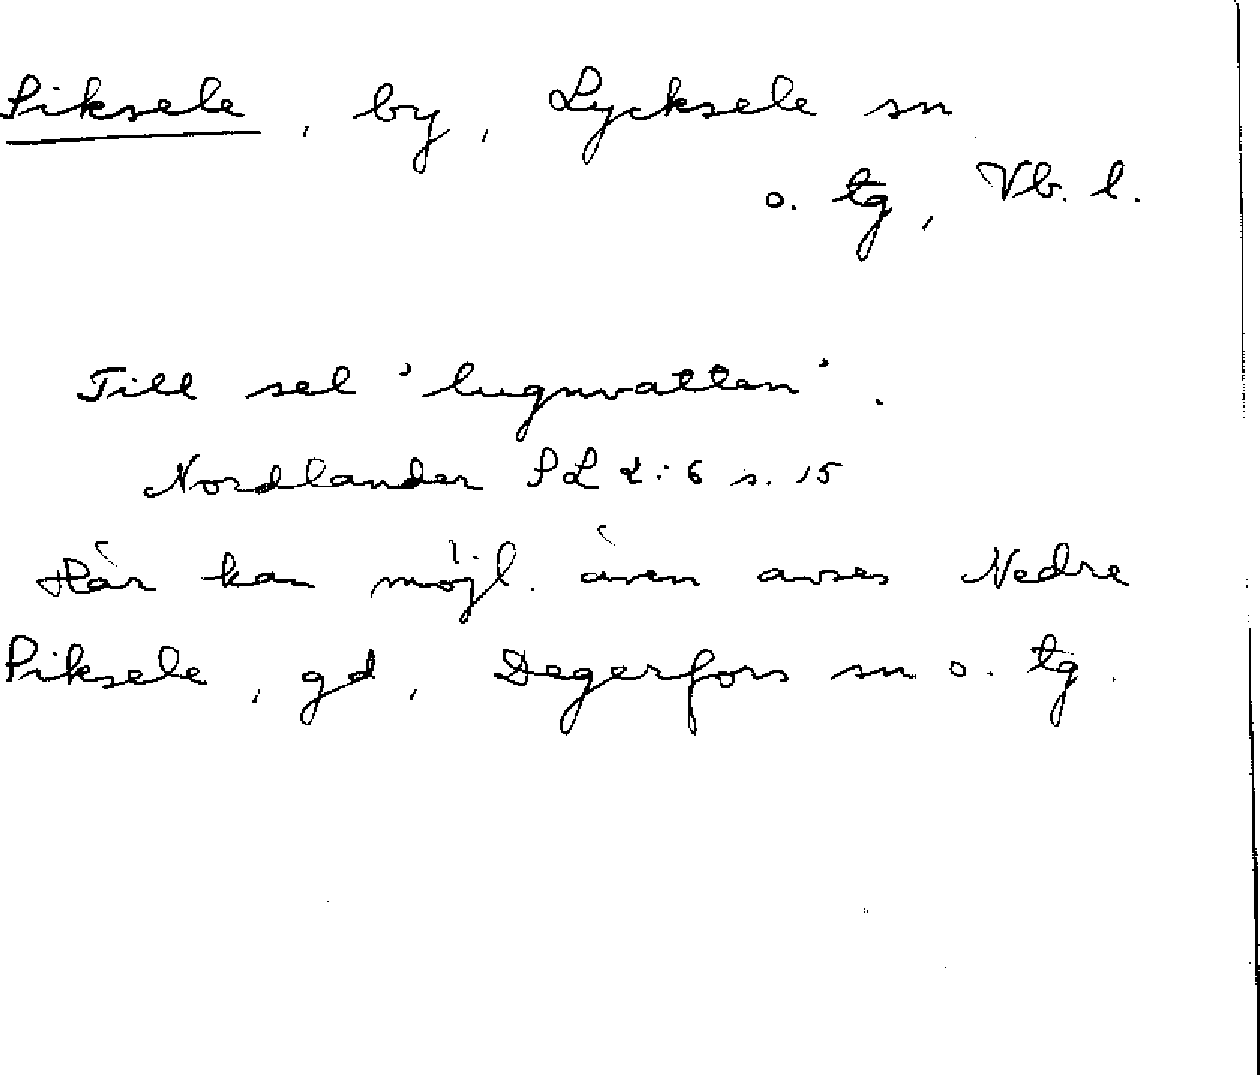 Piksele, by, Lycksele sn
o. tg, Vb. l.
Till sel 'lugnvatten'.
Nordlander PL 2:6 s. 15
Här kan möjl. även avses Nedre
Piksele, gd, Degerfors sn o. tg.